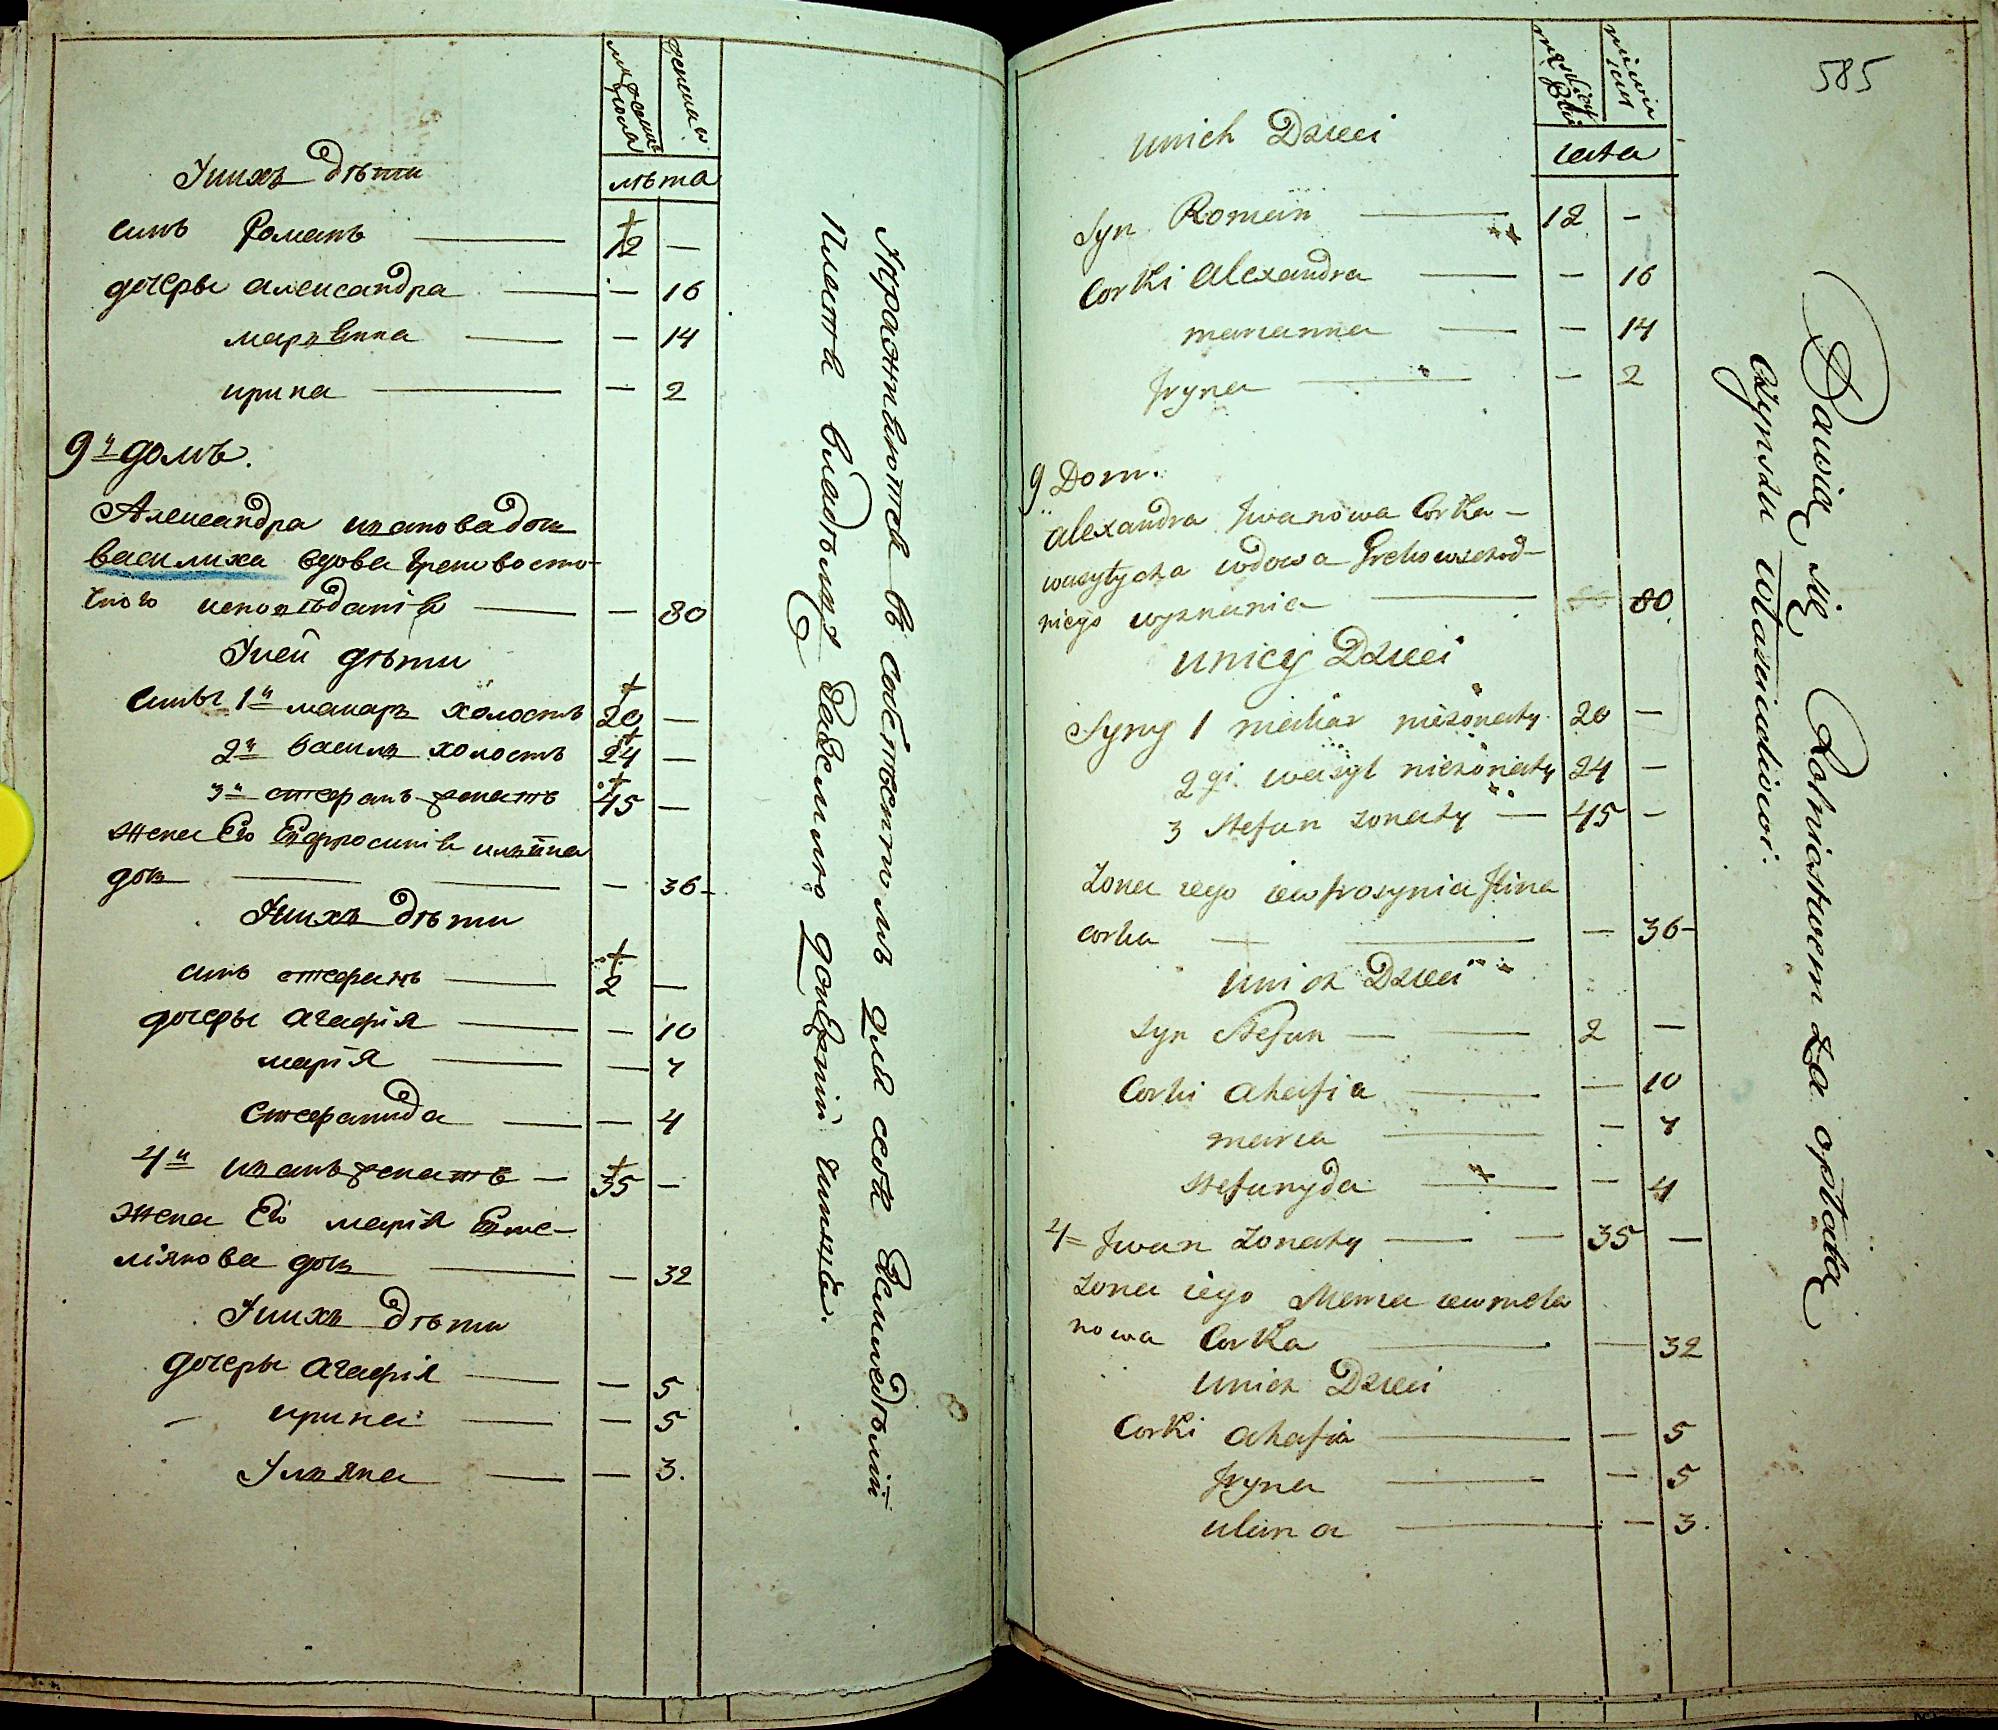 мужеска пола
женска
лѣта
У нихъ дѣти
сынъ Романъ — 12 —
дочеры александра — — 16
марьянна — — 14
ирина — — 2
9й домъ.
Александра иванова дочь
василиха вдова Грековосто-
чного исповѣданія — — 80
У ней дѣти
сыны 1й макаръ холостъ 20 —
2й василь холостъ 24 —
3й стефанъ женатъ 45 —
жена Его Евфросинія ильина
дочь — — — 36
У нихъ дѣти
сынъ стефанъ — 2 —
дочеры агафія — — 10
марія — — 7
Стефанида — — 4
4й иванъ женатъ — 35 —
жена Его марія Емѣ-
ліянова дочь — — 32
У нихъ дѣти
дочеры агафія — — 5
ирина — — 5
Ульяна — — 3.
Упражняются въ собственномъ для себя Земледѣліи
Платя владѣльцу Заземлю чиншъ.
585
lata
unich Dzieci
Syn Roman — 12 —
Corki Alexandra — — 16
marianna — — 14
Jryna — — 2
9 Dom.
alexandra Jwanowa Corka —
wasylycha wdowa Grekowschod-
niego wyznania — 80
unicy Dzieci
Syny 1 makar niezonaty 20 —
2gi wasyl niezonaty 24 —
3 Stefan zonaty — 45 —
Zona iego iewfrosynia Jlina
corka — — — 36
unich Dzieci
Syn Stefan — — 2 —
Corki ahafia — — 10
maria — — 7
Stefanyda — — 4
4 = Jwan Zonaty — — 35 —
Zona iego Maria iewmela
nowa Corka — — 32
unich Dzieci
Corki ahafia — — 5
Jryna — — 5
ulana — — 3.
Bawią się Rolnictwem Za opłatą
Czynszu Właścicielowi.